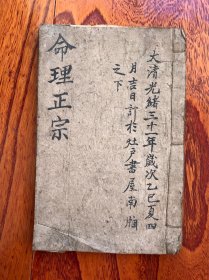 命理正宗
大清光緒三十一年歲次乙巳夏四
月吉日訂於灶戶書屋南牖
之下